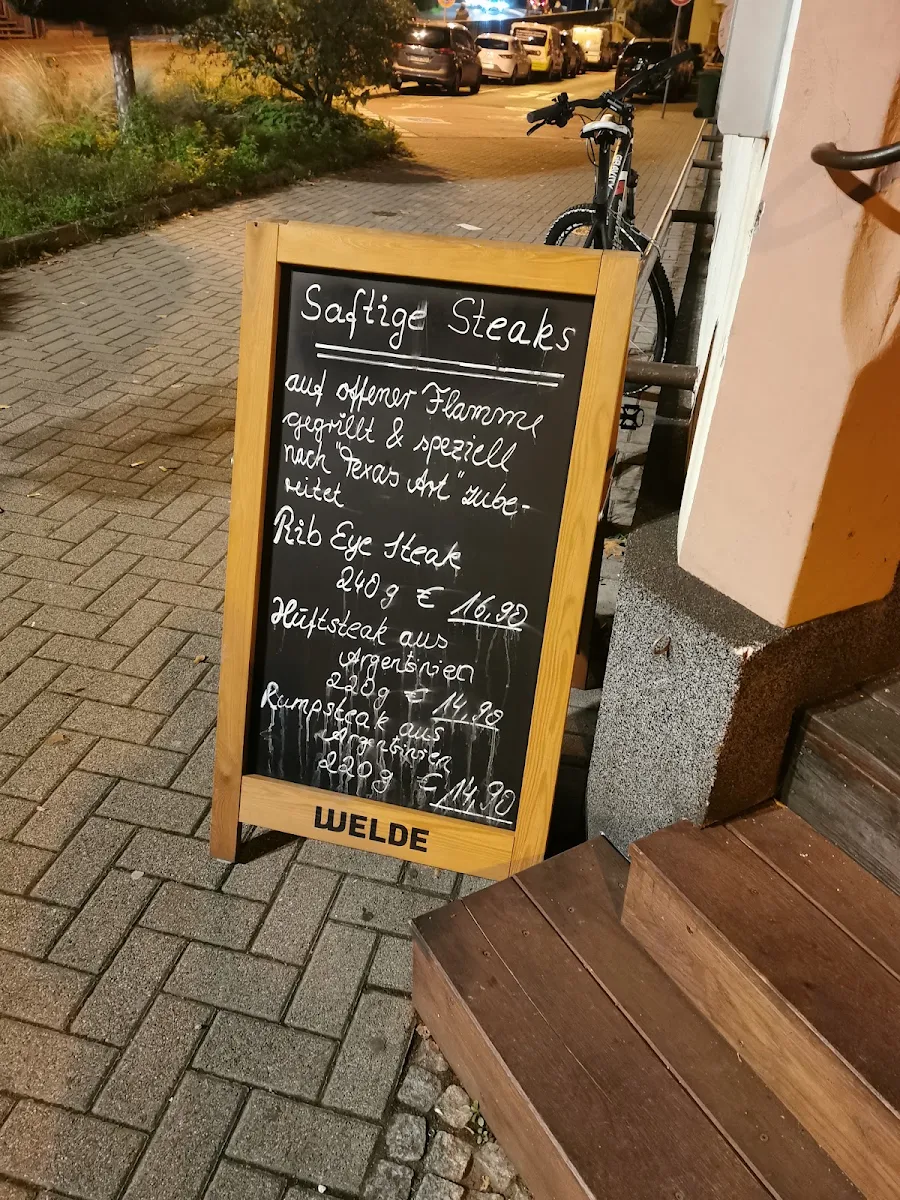 Saftige Steaks
auf offener Flamme
gegrillt & speziell
nach "Texas Art" zube-
reitet
Rib Eye Steak
240g € 16,90
Hüftsteak aus
Argentinien
220g € 14,90
Rumpsteak aus
Argentinien
220g € 14,90
WELDE